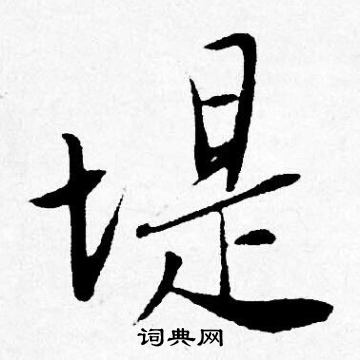 堤
词典网